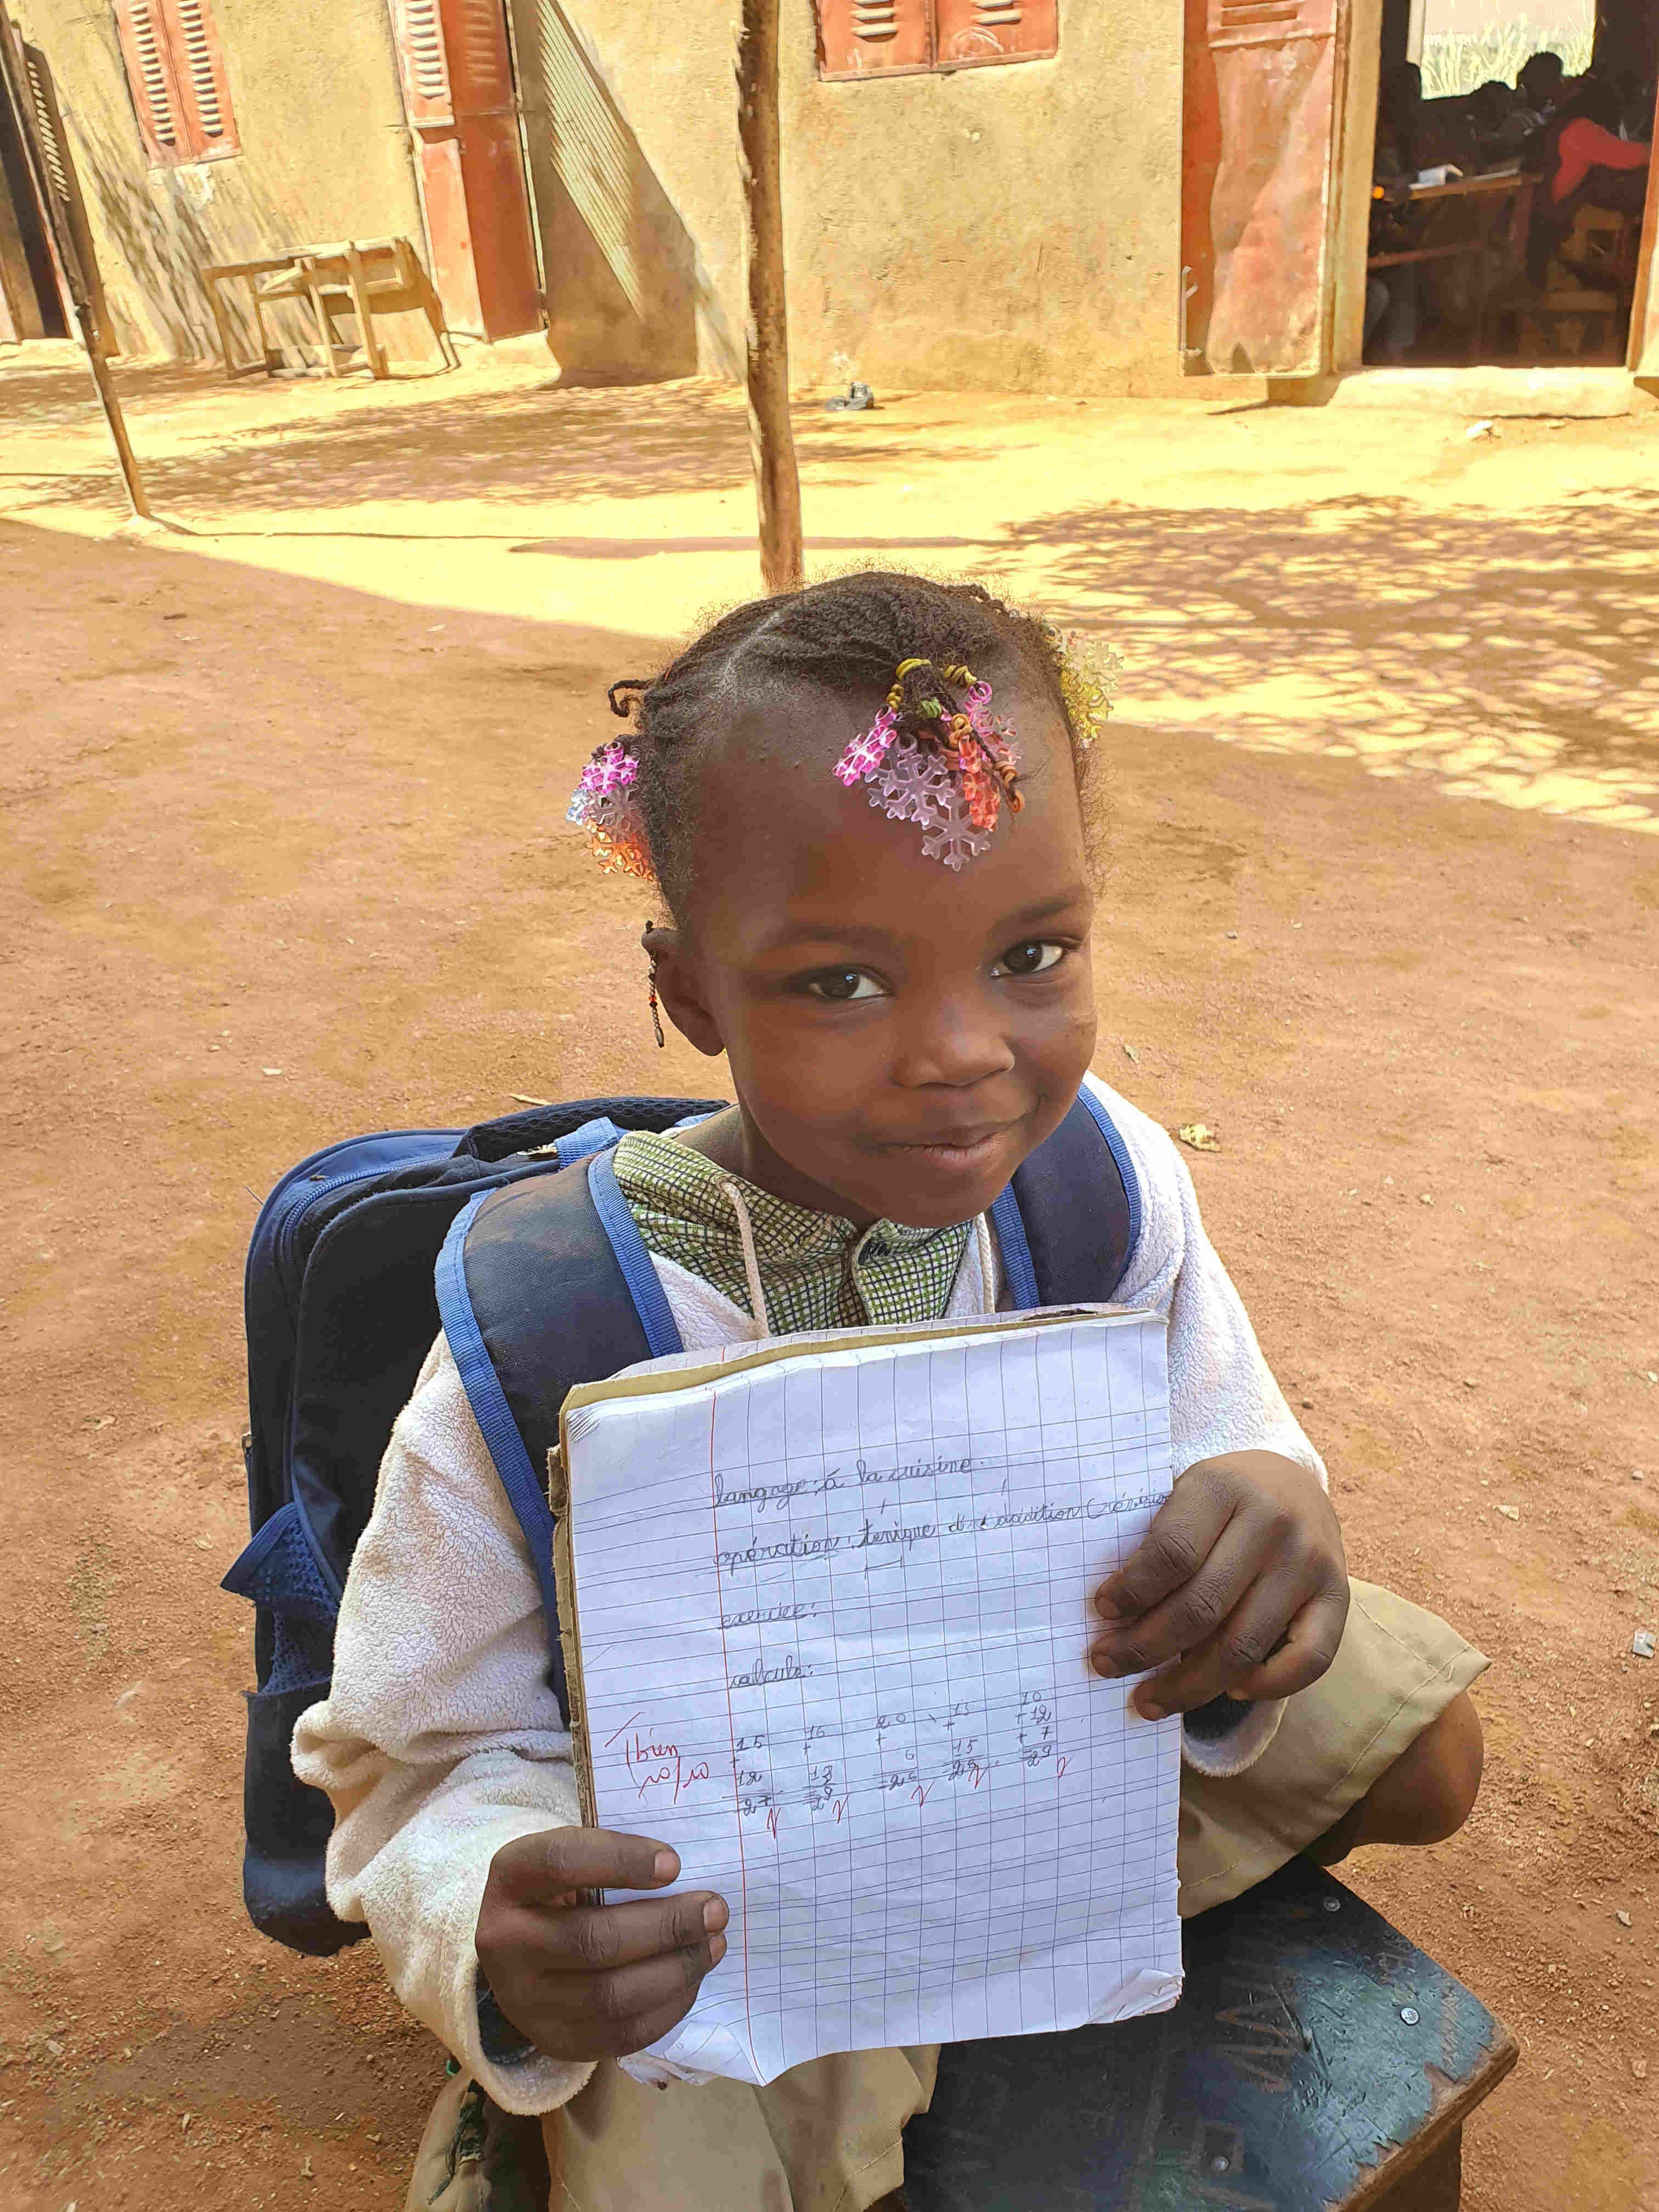 langage : à la cuisine.
opération : tenique de l'addition (révision
exercice :
calcule :
15 16 20 13 10
+ + + + +12
12 13 6 15 + 7
=27 =29 =26 =28 =29
bien
10/10